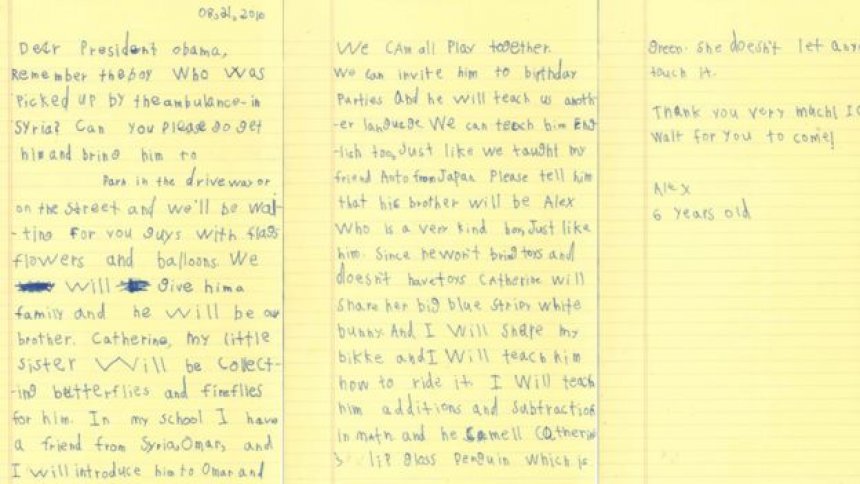 08,21,2010
Dear President obama,
Remember the boy who was
Picked up by the ambulance-in
Syria? Can you Please go get
him and bring him to
Park in the driveway or
on the street and we'll be wai-
-ting for you guys with flags
flowers and balloons. We
will give him a
family and he will be our
brother. Catherine, my little
sister will be collect-
-ing butterflies and fireflies
for him. In my school I have
a friend from Syria, Omar, and
I will introduce him to Omar and
We CAn all Play together.
We can invite him to birthday
Parties And he will teach us anoth-
-er language. We can teach him Eng-
-lish too, Just like we taught my
friend Aoto from Japan. Please tell him
that his brother will be Alex
Who is a very kind boy, Just like
him. Since he won't bring toys and
doesn't have toys Catherine will
share her big blue stripy white
bunny. And I will share my
bikke and I will teach him
how to ride it. I will teach
him additions and subtraction
in math and he smell Catherine
's lip gloss Penguin which is
green. She doesn't let any
touch it.
Thank you very much! I
wait for you to come!
Alex
6 years old